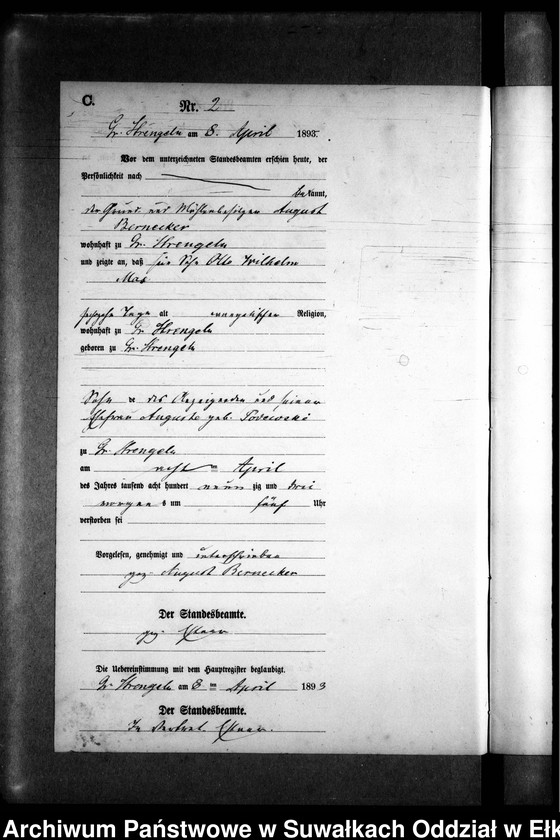 C.
Nr. 2
Gr. Strengeln am 8. April 1893.
Vor dem unterzeichneten Standesbeamten erschien heute, der
Persönlichkeit nach
bekannt,
der Grund und Mühlenbesitzer August
Bernecker
wohnhaft zu Gr. Strengeln
und zeigte an, daß sein Sohn Otto Wilhelm
Max
Tage alt evangelischer Religion,
wohnhaft zu Gr. Strengeln
geboren zu Gr. Strengeln
Sohn des Anzeigenden und seiner
Ehefrau Auguste geb.
zu Gr. Strengeln
am acht ten April
des Jahres tausend acht hundert neun zig und drei
morgens um fünf Uhr
verstorben sei
Vorgelesen, genehmigt und unterschrieben
gez. August Bernecker
Der Standesbeamte.
gez.
Die Uebereinstimmung mit dem Hauptregister beglaubigt.
Gr. Strengeln am 8 ten April 1893
Der Standesbeamte.
In Vertret.
Archiwum Państwowe w Suwałkach Oddział w Ełk